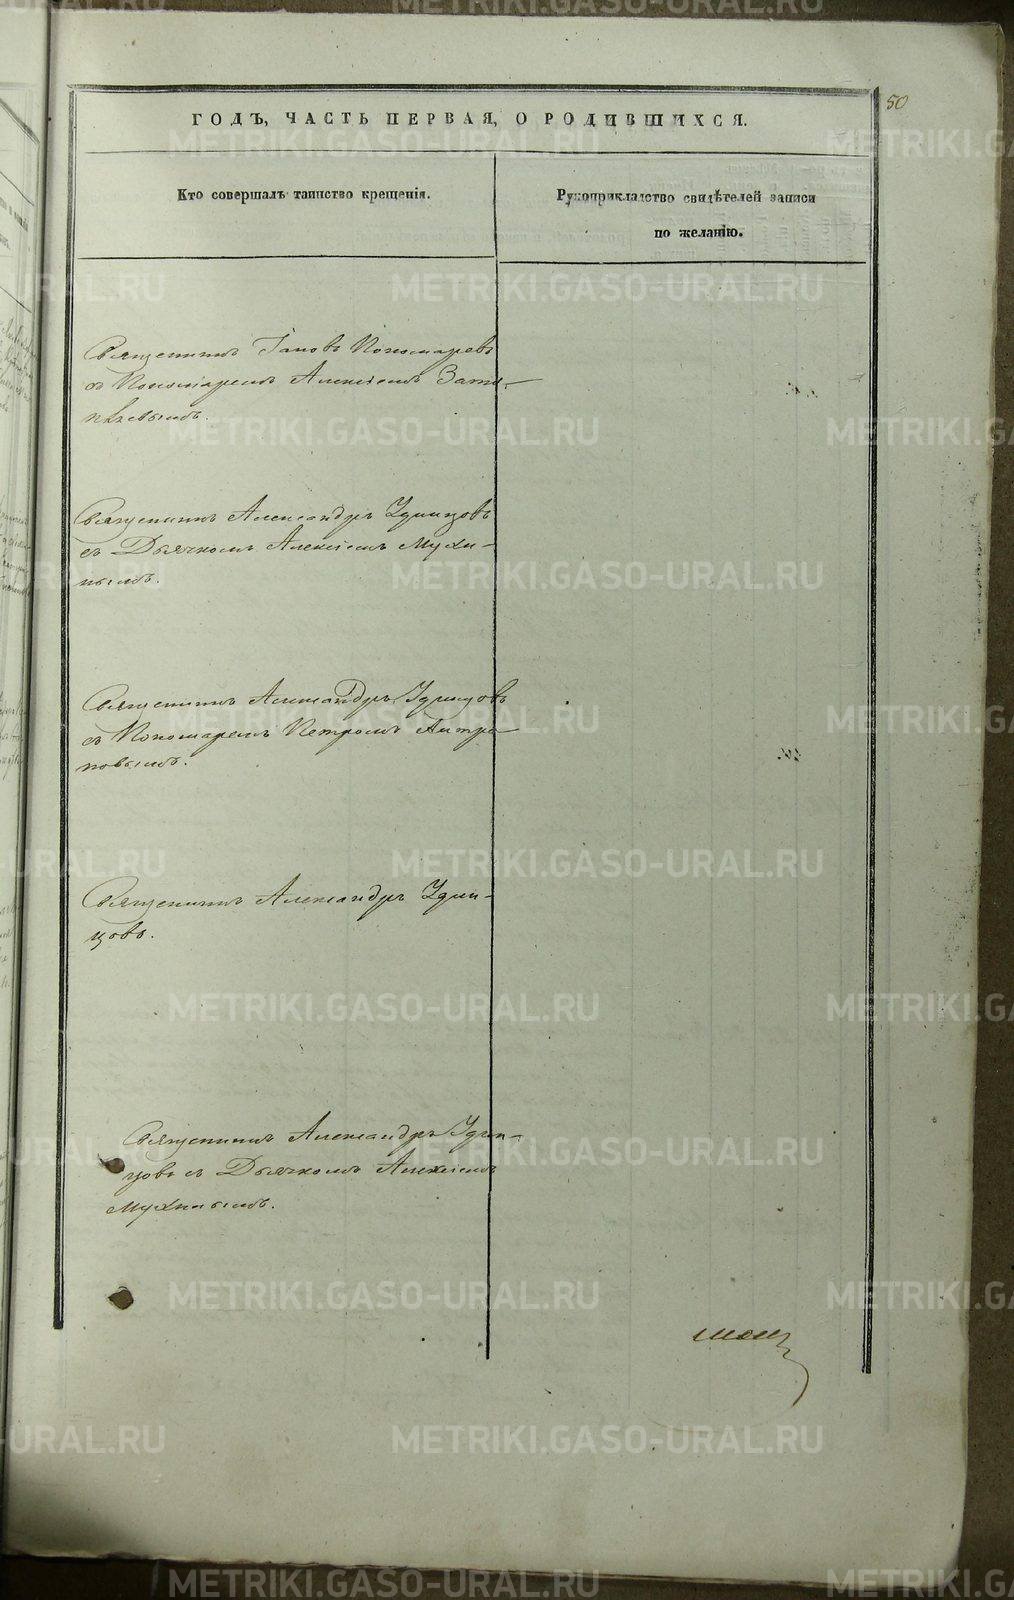 50
ГОДЪ, ЧАСТЬ ПЕРВАЯ, О РОДИВШИХСЯ.
Кто совершалъ таинство крещенія.
Рукоприкладство свидѣтелей записи
по желанію.
Священникъ Іаковъ Пономаревъ
съ Пономаремъ Алексіемъ
Священникъ Александръ Удинцовъ
съ Дьячкомъ Алексіемъ Мухи-
нымъ.
Священникъ Александръ Удинцовъ
съ Пономаремъ Петромъ Антро-
повымъ.
Священникъ Александръ Удин-
цовъ.
Священникъ Александръ Удин-
цовъ съ Дьячкомъ Алексіемъ
Мухинымъ.
METRIKI.GASO-URAL.RU